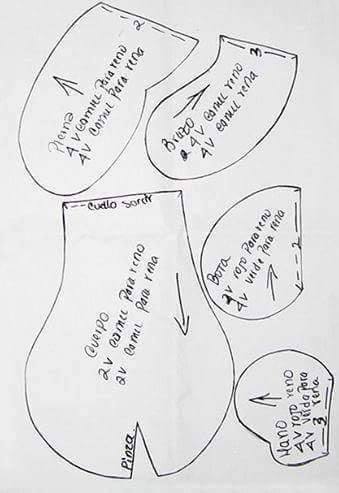 2
Pierna
4V Camel Para reno
4V Camel Para rena
3
Brazo
4V Camel reno
4V Camel rena
Cuello
Cuerpo
2V Camel Para reno
2V Camel Para rena
Pinza
Bota
4V rojo Para reno
4V Verde Para rena
2
Mano
4V rojo reno
4V Verde Para
rena
3